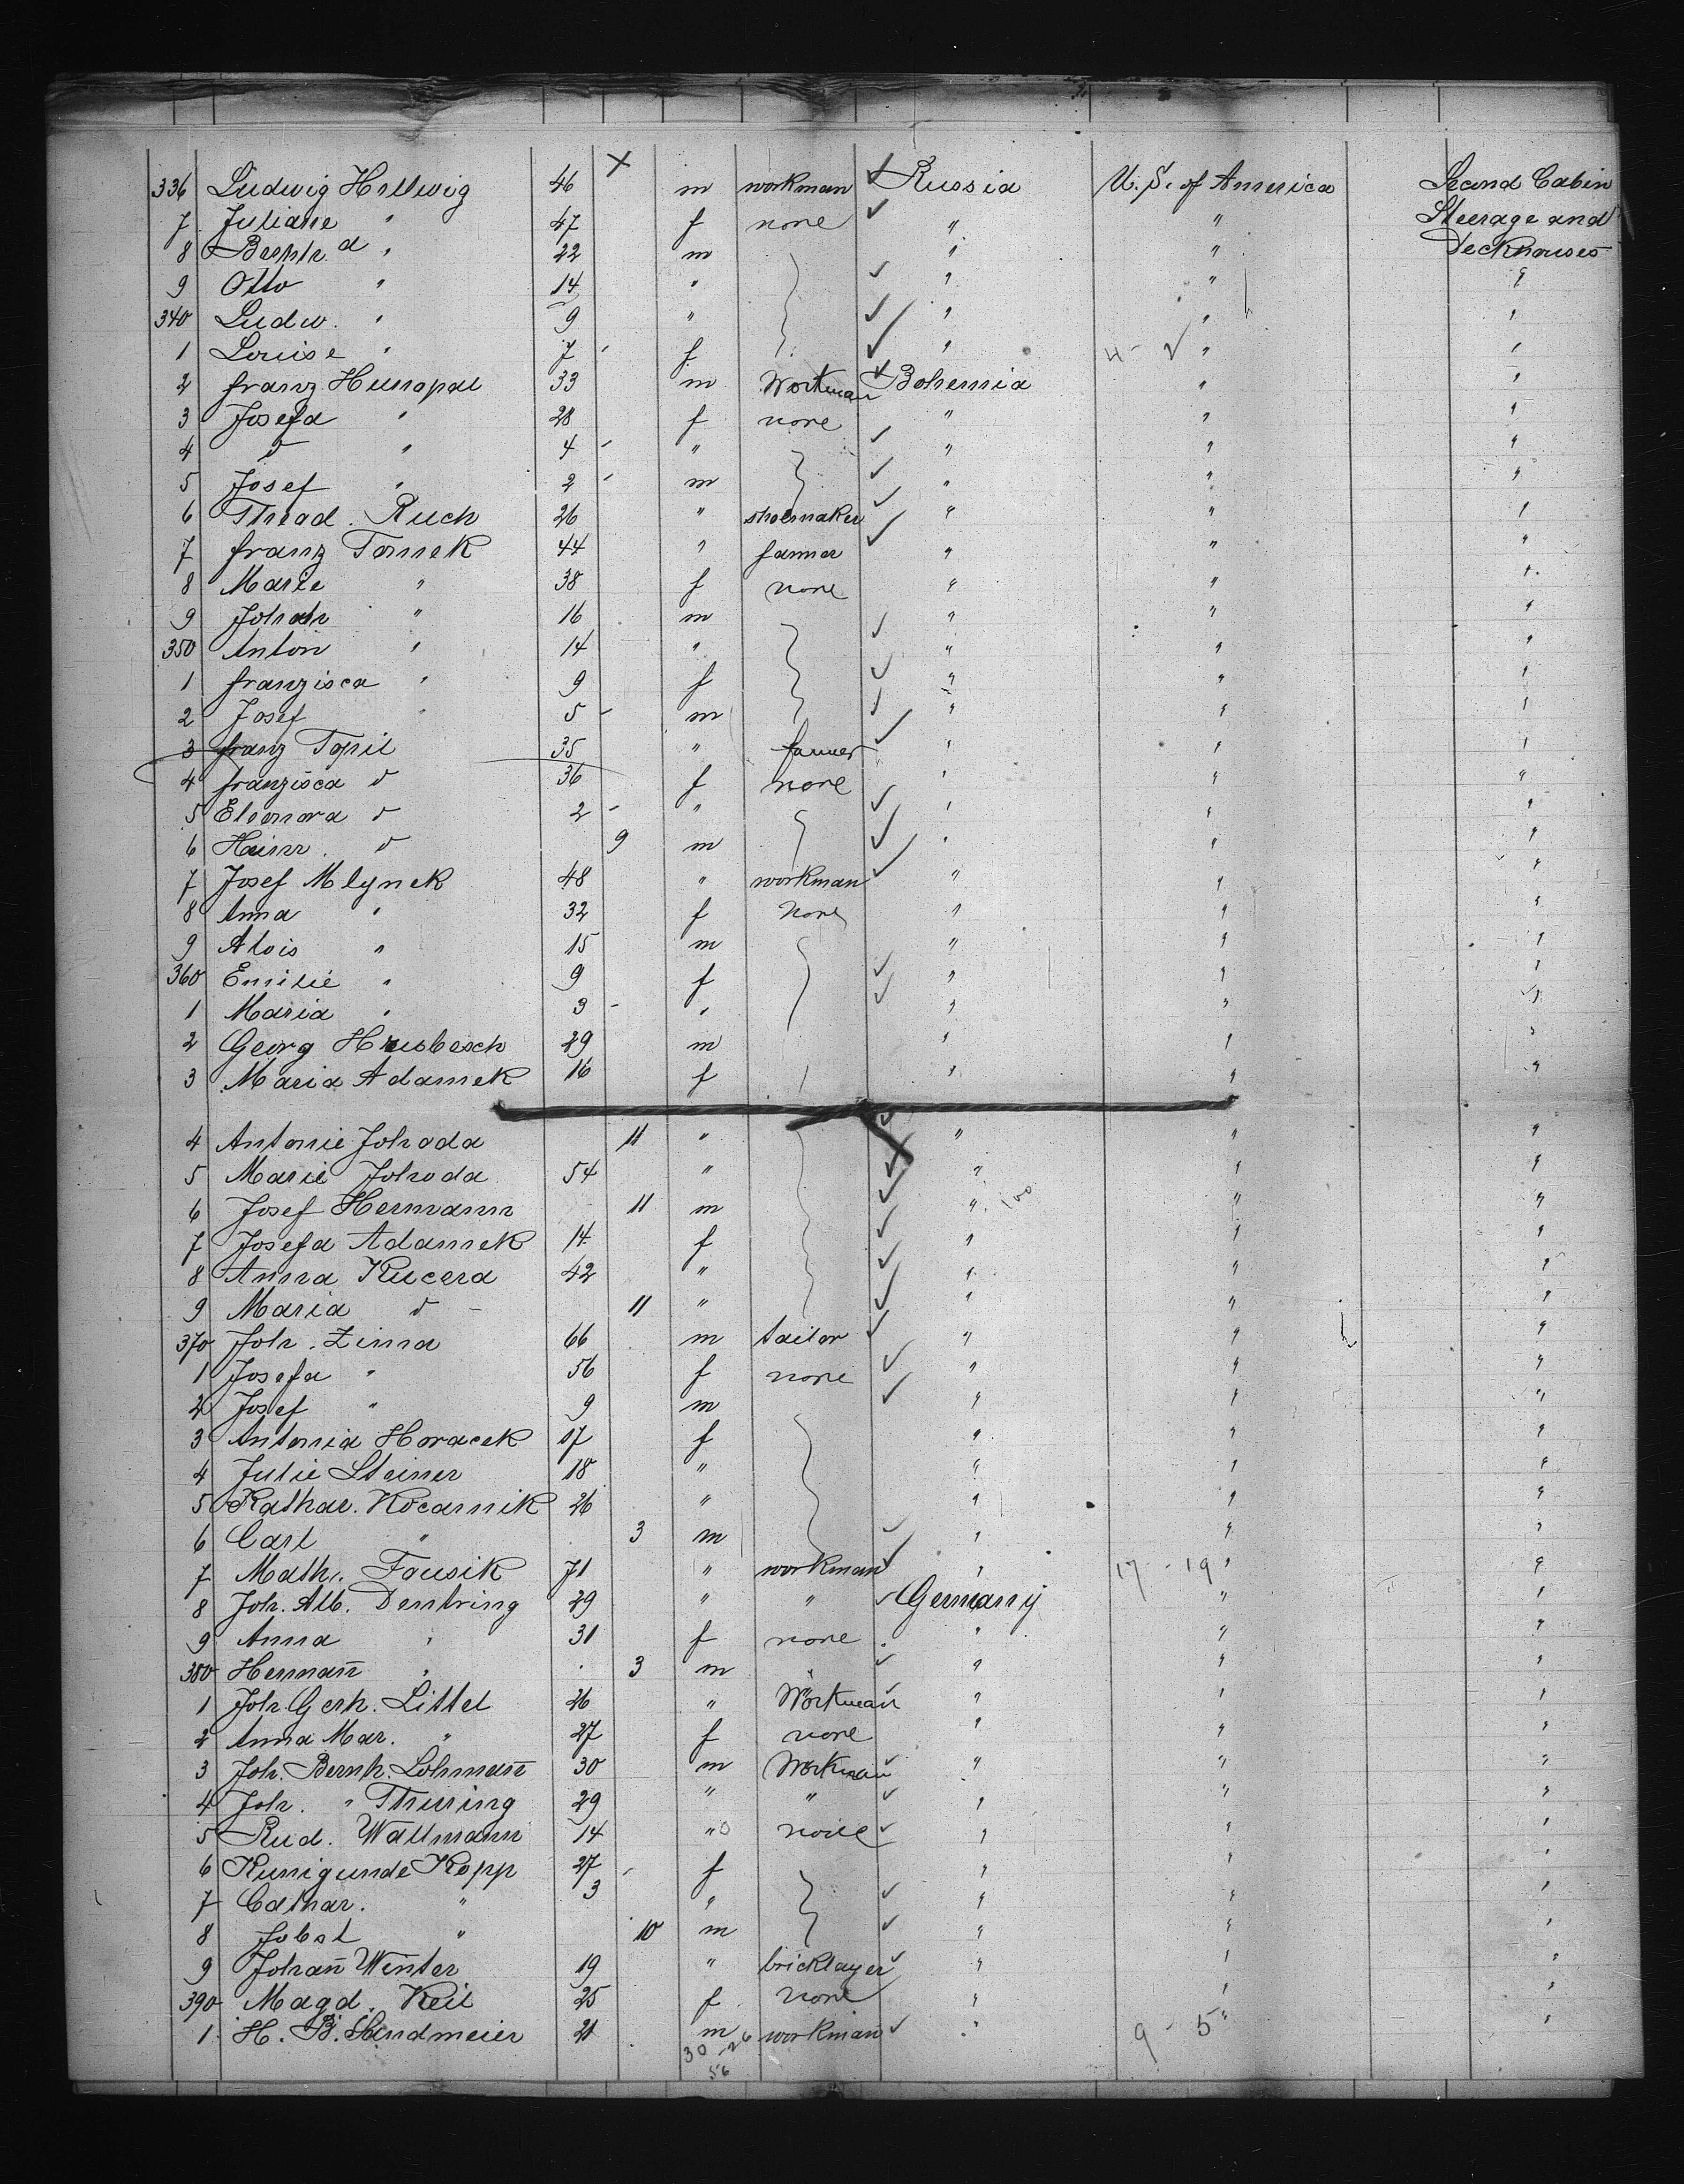 336 Ludwig Hellwig 46 m workman Russia U. S. of America Second Cabin
7 Juliane " 47 f none " " Steerage and
8 d " 22 m " " Deckhouses
9 Otto " 14 " " " "
340 Ludw. " 9 " " " "
1 Louise " 7 f " 4 - "
2 Franz 33 m Workman Bohemia " "
3 Josefa " 28 f none " " "
4 d " 4 " " " "
5 Josef " 2 m " " "
6 Ruch 26 " shoemaker " " "
7 Franz Tomek 44 " farmer " " "
8 Marie " 38 f none " " "
9 Johann " 16 m " " "
350 Anton " 14 " " " "
1 Franzisca " 9 f " " "
2 Josef " 5 - m " " "
3 Franz Topil 35 " farmer " " "
4 Franzisca d 36 f none " " "
5 Eleonora d 2 - " " " "
6 Heinr. d 9 m " " "
7 Josef Mlynek 48 " workman " " "
8 Anna " 32 f none " " "
9 Alois " 15 m " " "
360 Emilie " 9 f " " "
1 Maria " 3 - " " " "
2 Georg 29 m " " "
3 Maria Adamek 16 f " " "
4 Antonie Johoda 11 " " " "
5 Marie Johoda 54 " " " "
6 Josef Hermann 11 m " 100 " "
7 Josefa Adamek 14 f " " "
8 Anna Kucera 42 " " " "
9 Maria d - 11 " " " "
370 Joh. Zima 66 m tailor " " "
1 Josefa " 56 f none " " "
2 Josef " 9 m " " "
3 Antonia Horacek 17 f " " "
4 Julie Steiner 18 " " " "
5 Kathar. Kocarnik 26 " " " "
6 Carl " 3 m " " "
7 Math. Fousik 71 " workman " 17 - 19 " "
8 Joh. Alb. Dentring 29 " " Germany " "
9 Anna " 31 f none " " "
380 Hermañ " 3 m " " " "
1 Joh. Gerh. Littel 26 " Workman " " "
2 Anna Mar. " 27 f none " " "
3 Joh. Bernh. Lohmañ 30 m Workman " " "
4 Joh. " Thuring 29 " " " " "
5 Rud. Wallmann 14 " none " " "
6 Kunigunde Kopp 27 - f " " "
7 Cathar. " 3 " " " "
8 Jobst " 10 m " " "
9 Johañ Winter 19 " bricklayer " " "
390 Magd. Keil 25 f none " " "
1 H. B. Sandmeier 21 m workman " 9 - 5 " "
30 - 26
56